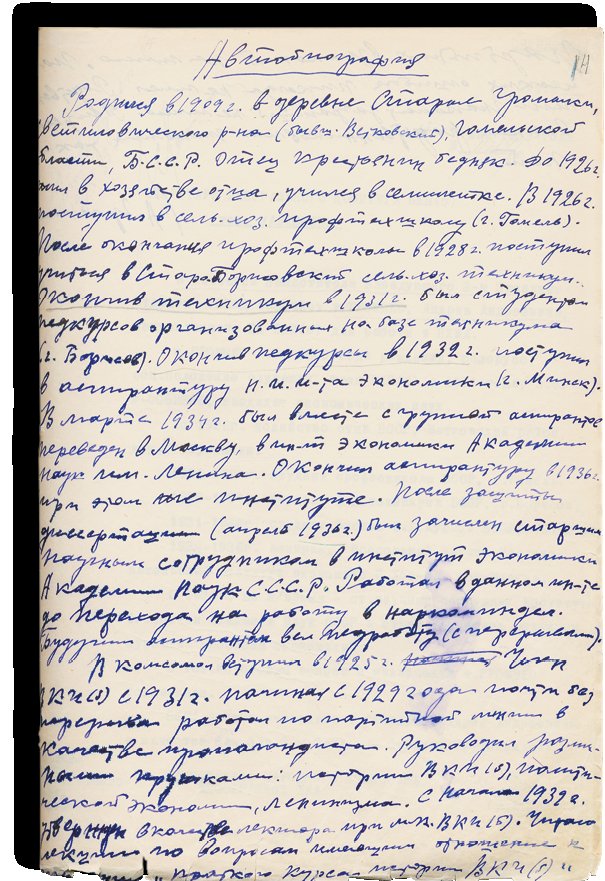 14
Автобиография
Родился в 1909 г. в деревне Старые Громыки,
Светиловического р-на (бывш. Ветковский), Гомельской
области, Б.С.С.Р. Отец крестьянин бедняк. До 1926 г.
был в хозяйстве отца, учился в семилетке. В 1926 г.
поступил в сель.-хоз. профтехшколу (г. Гомель).
После окончания профтехшколы в 1928 г. поступил
учиться в Старо-Борисовский сель.-хоз. техникум.
Окончив техникум в 1931 г. был студентом
педкурсов организованных на базе техникума
(г. Борисов). Окончив педкурсы в 1932 г. поступил
в аспирантуру н.и. и-та экономики (г. Минск).
В марте 1934 г. был вместе с группой аспирантов
переведен в Москву, в ин-т экономики Академии
наук им. Ленина. Окончил аспирантуру в 1936 г.
при этом же институте. После защиты
диссертации (апрель 1936 г.) был зачислен старшим
научным сотрудником в институт экономики
Академии Наук С.С.С.Р. Работал в данном ин-те
до перехода на работу в наркоминдел.
Будучи аспирантом вел педработу (с перерывами).
В комсомол вступил в 1925 г. Член
ВКП(б) с 1931 г. начиная с 1929 года почти без
перерыва работал по партийной линии в
качестве пропагандиста. Руководил различ-
ными кружками: истории ВКП(б), полити-
ческой экономии, ленинизма. С начала 1939 г.
утвержден в качестве лектора при ВКП(б). Читаю
лекции по вопросам имеющим отношение к
"Краткого курса истории ВКП(б)"